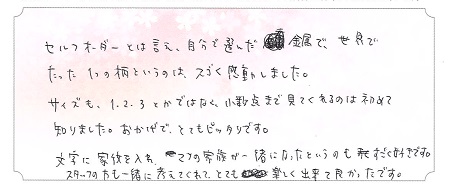 セルフオーダーとは言え、自分で選んだ金属で、世界で
たった1つの柄というのは、スゴく感動しました。
サイズも、1.2.3とかではなく、小数点まで見てくれるのは初めて
知りました。おかげで、とてもピッタリです。
文字に家族を入れ、2つの家族が一緒になったというのもすごく好きです。
スタッフの方も一緒に考えてくれて、とても楽しく出来て良かったです。